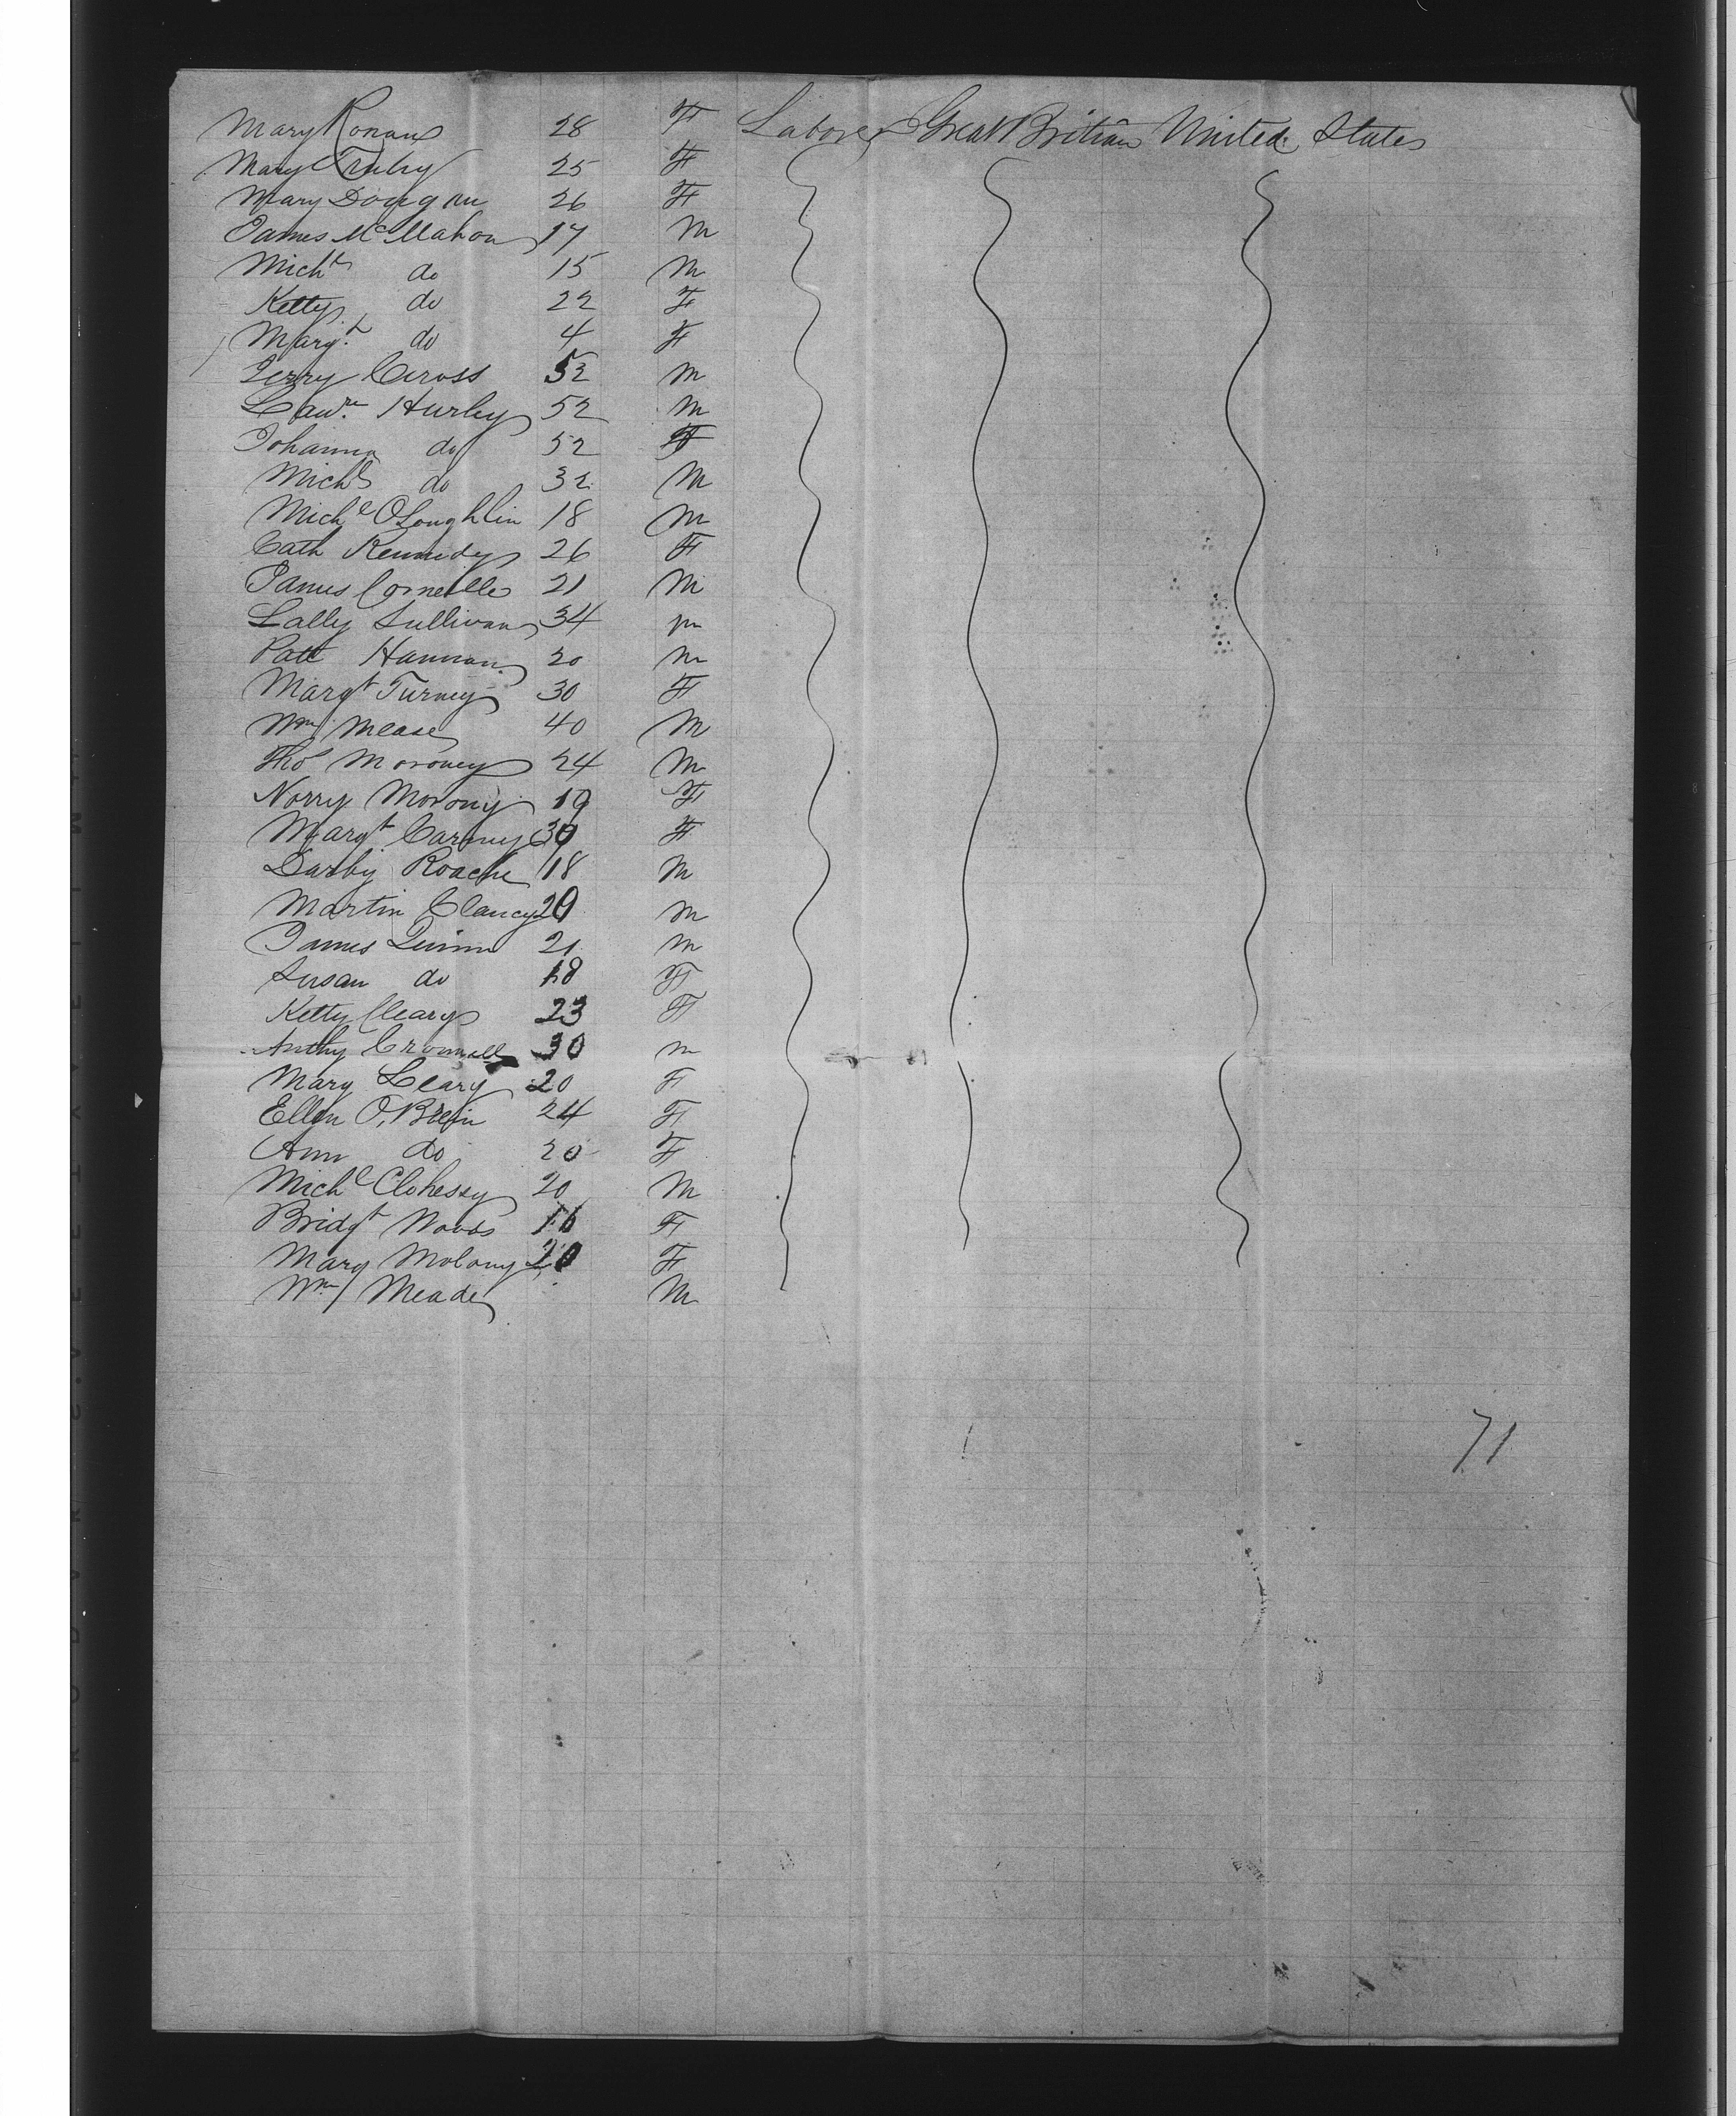 Mary Ronan 28 F Laborer Great Britian United States
Mary 25 F
Mary Dougan 26 F
James McMahon 17 M
Michl do 15 M
Ketty do 22 F
Margt do 4 F
Jerry Cross 52 M
Lawre Hurley 52 M
Johanna do 52 F
Michl do 32 M
Michl OLoughlin 18 M
Cath Kennedy 26 F
James Cornelle 21 M
Lally Sullivan 34 m
Patt Hannan 20 m
Margt Turney 30 F
Wm Mease 40 M
Tho Moroney 24 M
Norry Morony 19 F
Margt Carney 30 F
Darby Roache 18 M
Martin Clancy 20 M
James Quinn 21 M
Susan do 18 F
Ketty Cleary 23 F
Anthy 30 m
Mary Leary 20 F
Ellen O,Brein 24 F
Ann do 20 F
Michl Clohessy 20 M
Bridgt Woods 16 F
Mary Molony 20 F
Wm Meade M
71